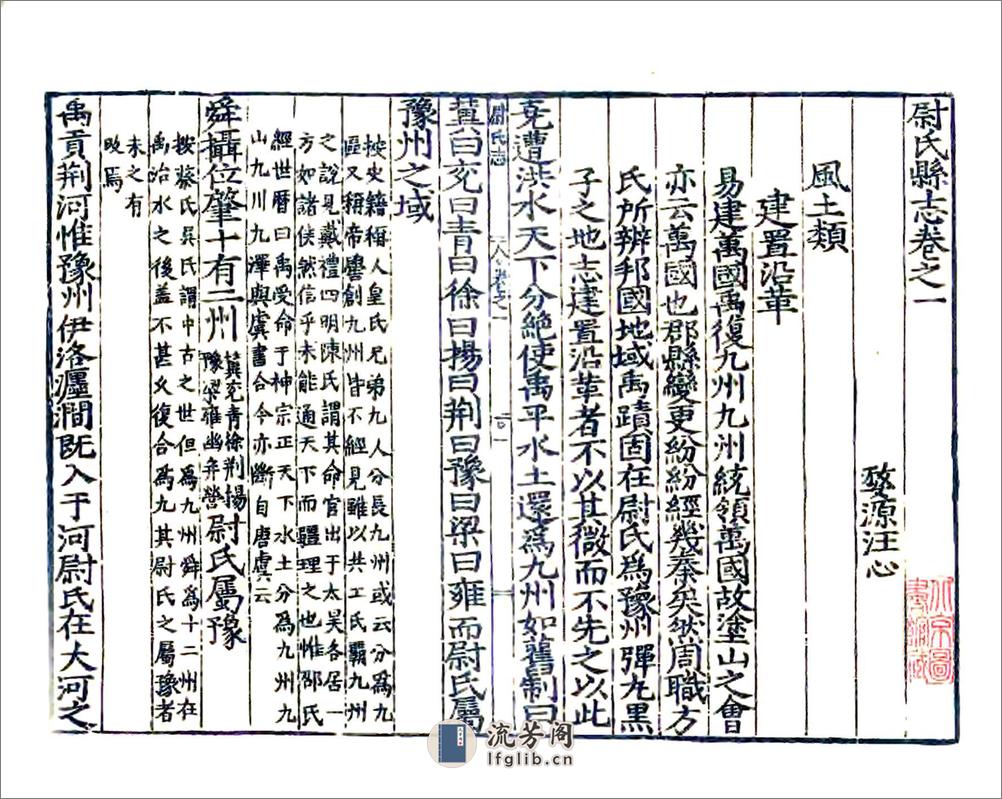 尉氏縣志卷之一
婺源汪心
風土類
建置沿革
易建萬國禹復九州九州統領萬國故塗山之會
亦云萬國也郡縣變更紛紛經幾秦矣然周職方
氏所辨邦國地域禹蹟固在尉氏爲豫州彈丸黑
子之地志建置沿革者不以其微而不先之以此
堯遭洪水天下分絶使禹平水土還爲九州如舊制曰
尉氏志
卷之一
冀曰兖曰青曰徐曰揚曰荆曰豫曰梁曰雍而尉氏屬
豫州之域
按史籍稱人皇氏兄弟九人分長九州或云分爲九
區又稱帝嚳創九州皆不經見雖以共工氏霸九州
之說見戴禮四明陳氏謂其命官出于太昊各居一
方如諸侯然信乎未能通天下而疆理之也惟邵氏
經世曆曰禹受命于神宗正天下水土分爲九州九
山九川九澤與虞書合今亦斷自唐虞云
舜攝位肇十有二州冀兖青徐荆揚豫梁雍幽并營尉氏屬豫
按蔡氏吴氏謂中古之世但爲九州舜爲十二州在
禹治水之後盖不甚乆復合爲九其尉氏之屬豫者
未之有
改焉
禹貢荆河惟豫州伊洛瀍澗既入于河尉氏在大河之
流芳阁
lfglib.cn